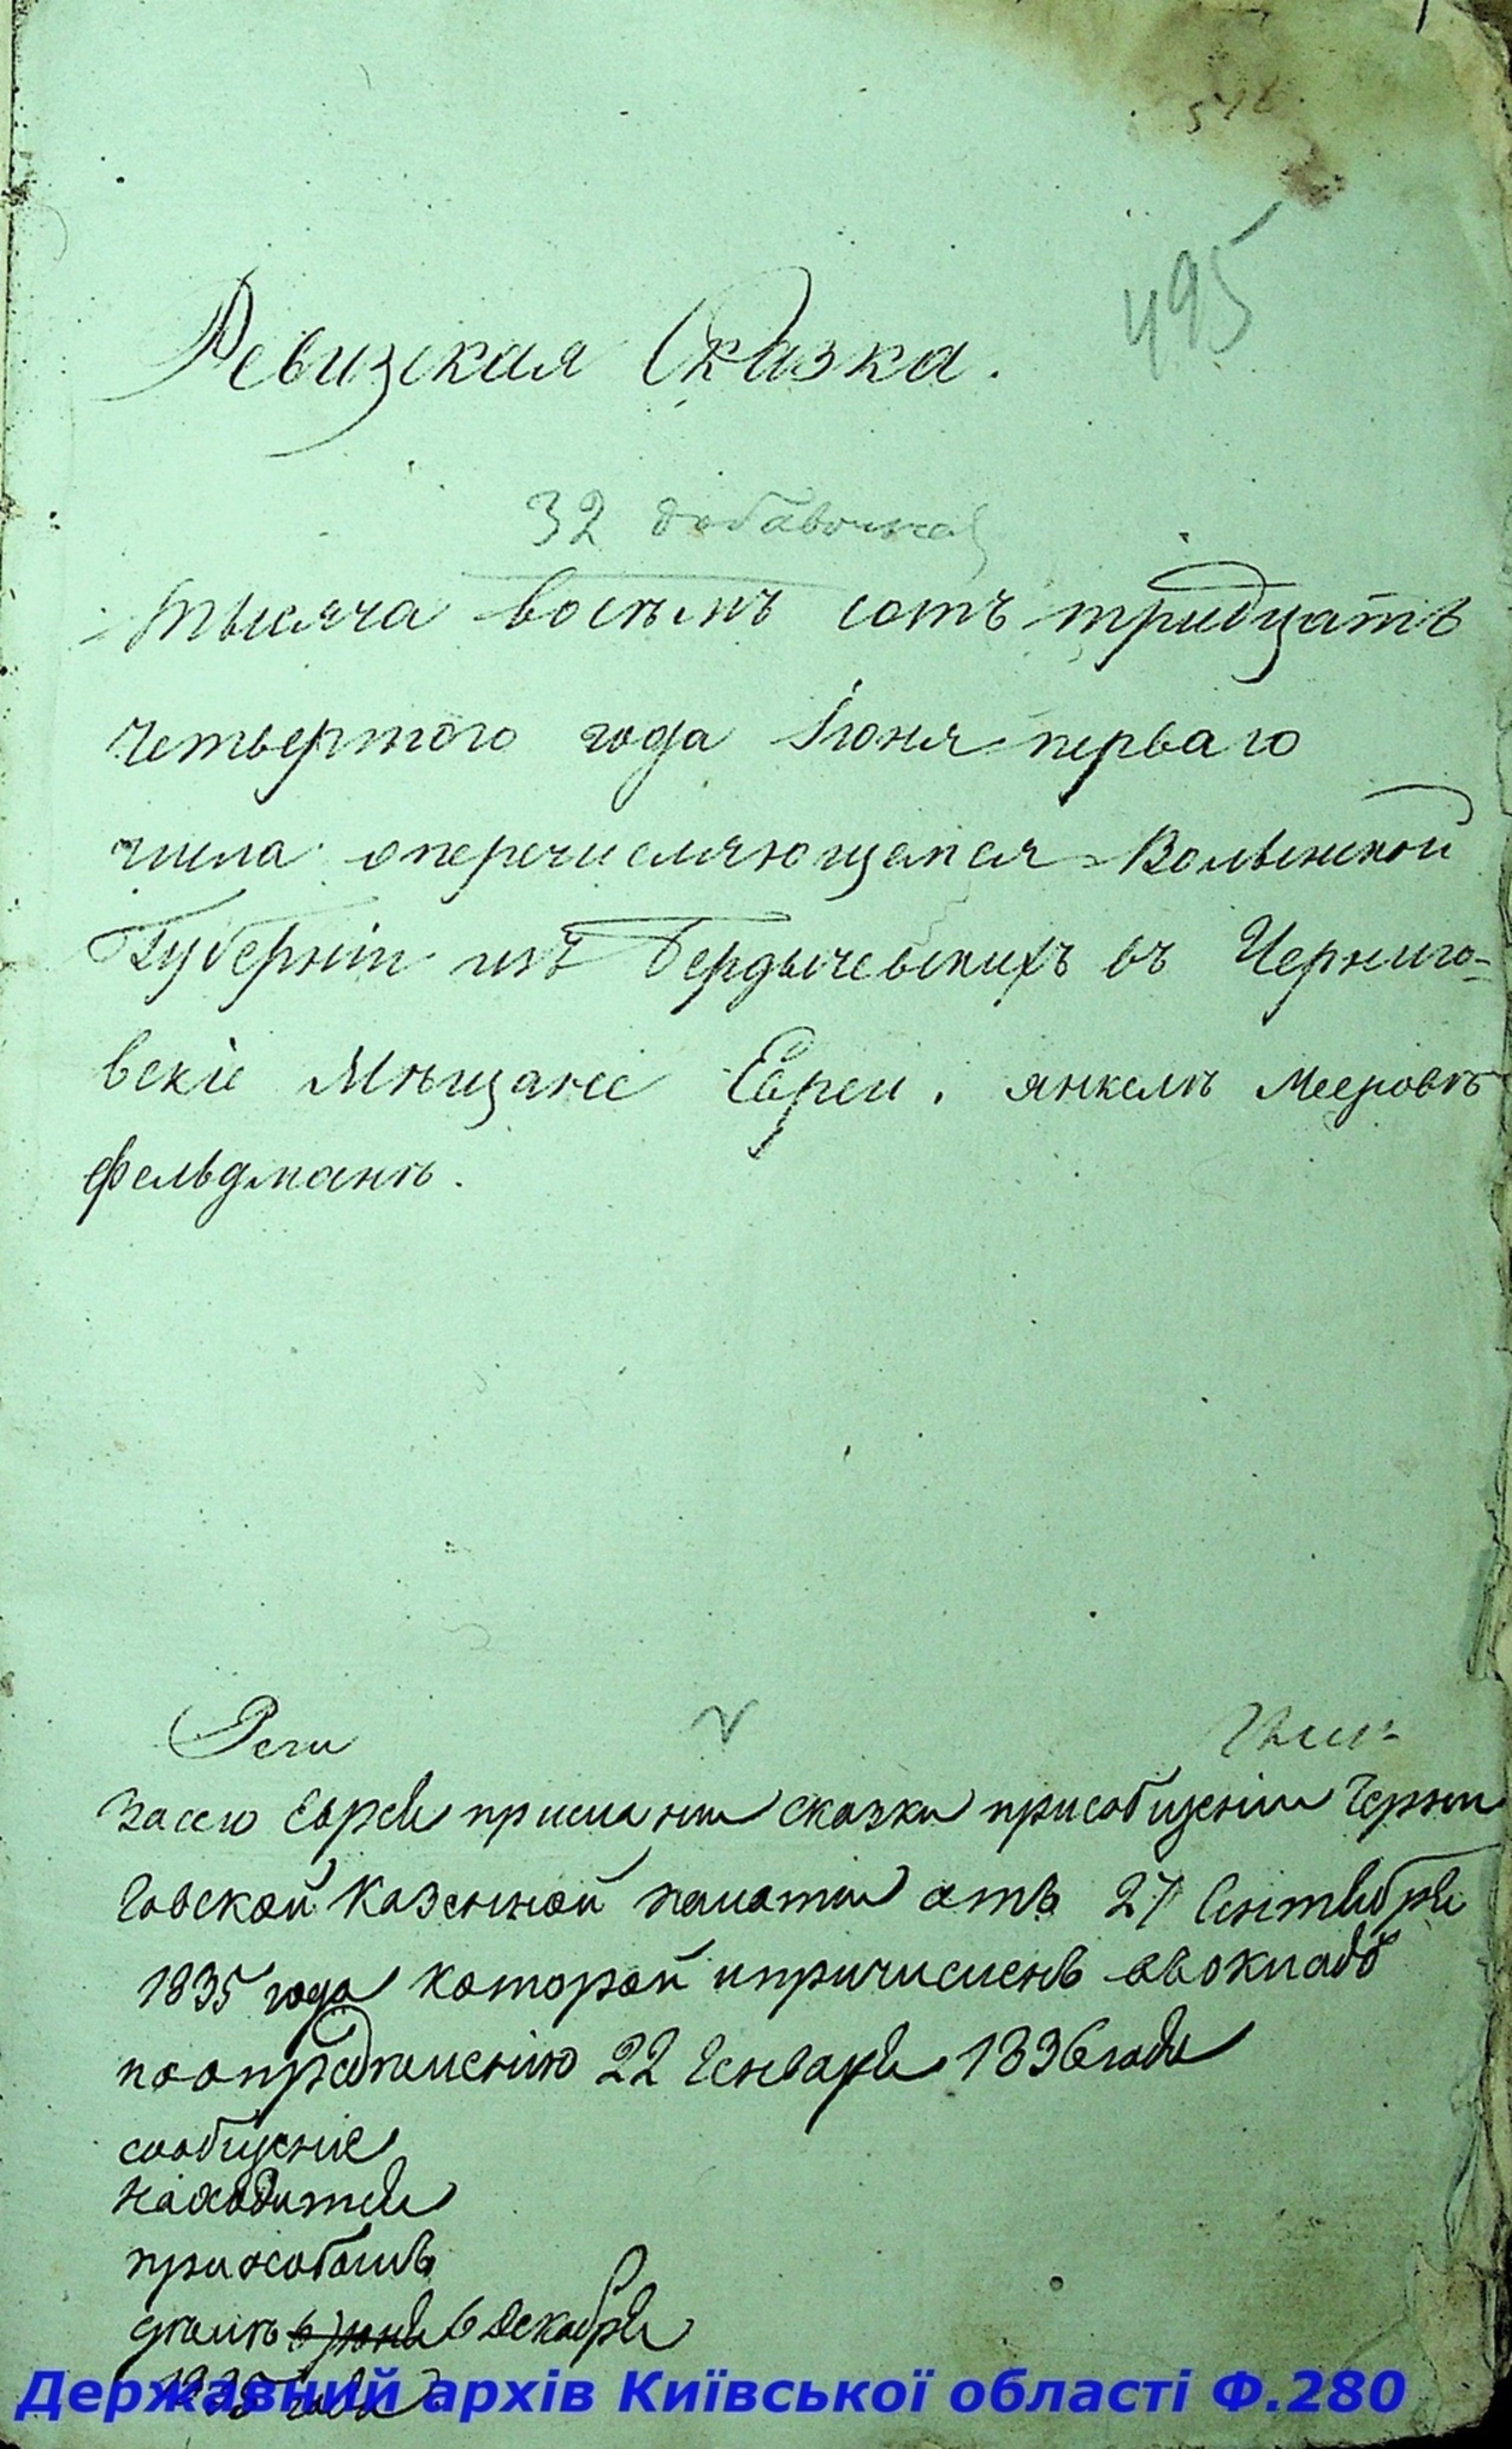 516.
495
Ревизская Сказка.
32 добавочная
тысяча восемъ сотъ тридцать
четвертого года Іюня перваго
числа оперечисляющемся Волынской
Губерніи изъ Бердычевскихъ въ Черниго-
вскіе Мѣщане Евреи. янкель Мееровъ
фельдманъ.
засего Еврея присланы сказки присобщеніи Черни
говской Казенной палаты отъ 27 Сентября
1835 года которой ипричисленъ авокладъ
поопредѣленію 22 Генваря 1836 года
сообщеніе
находится
приособомъ
дѣлѣ 6 Декабря
1835 года
Державний архів Київської області Ф.280